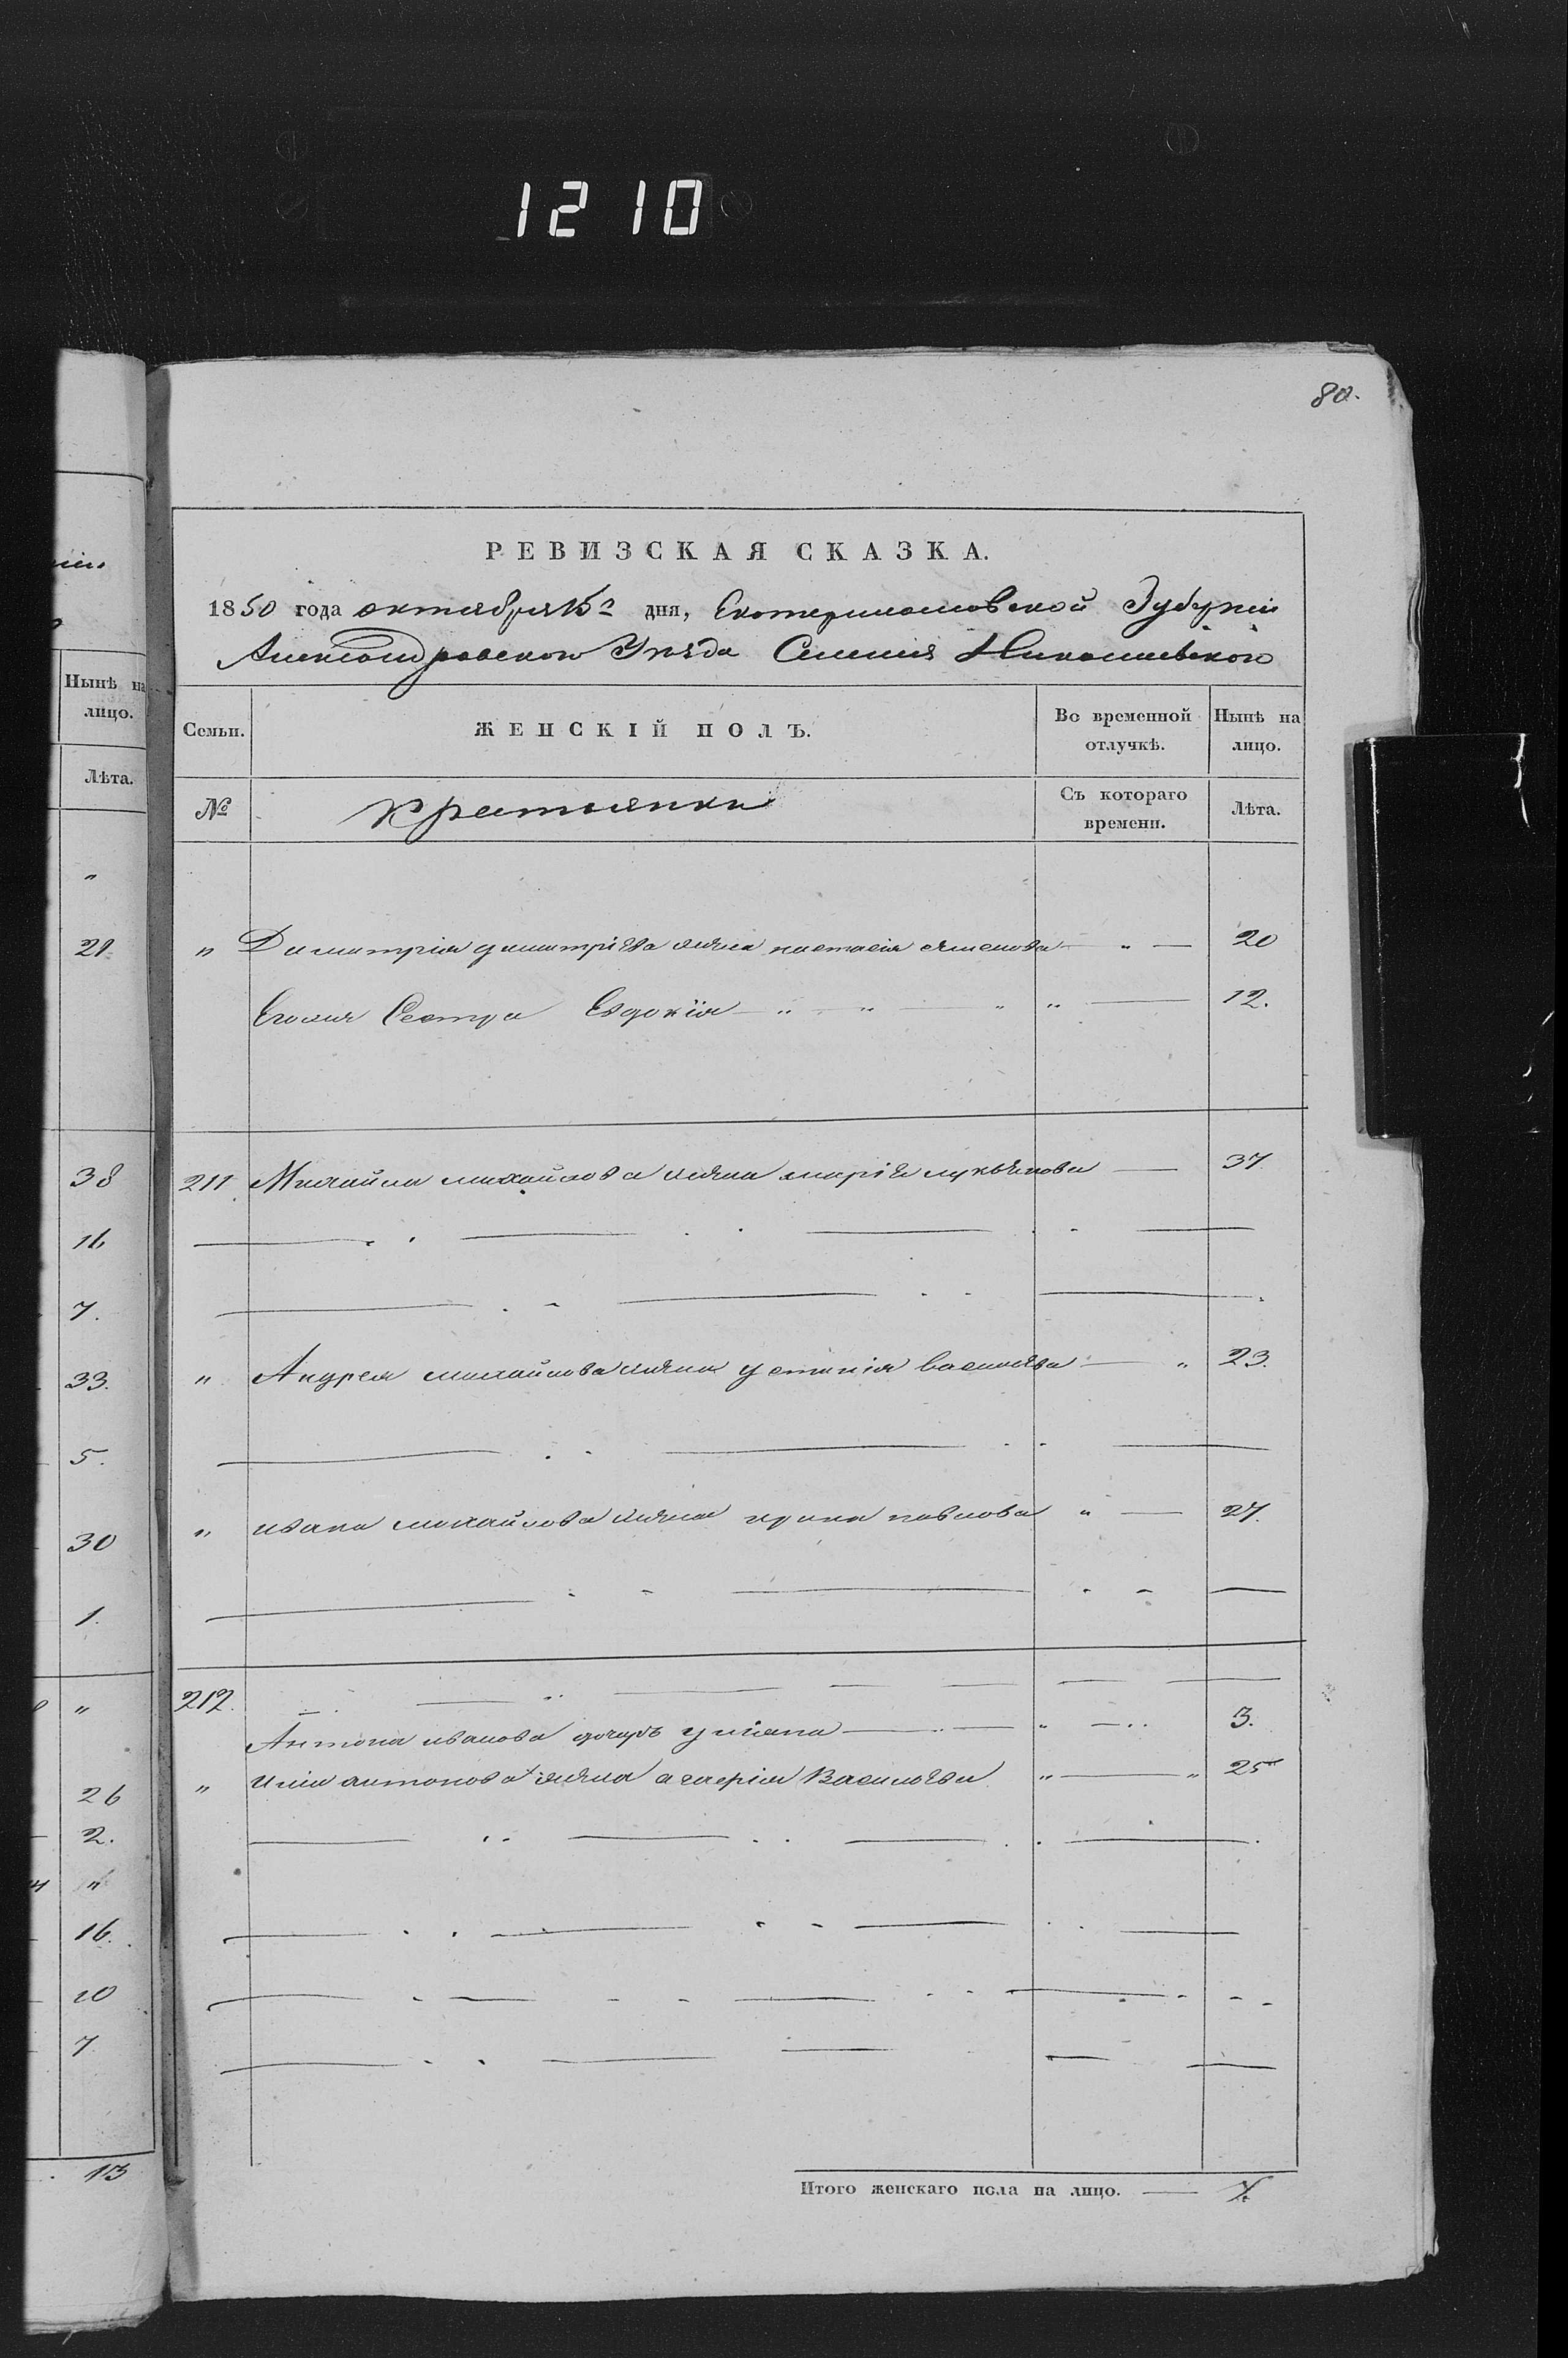 1210
80.
РЕВИЗСКАЯ СКАЗКА.
1850 года октября 15го дня, Екатеринославской Губерніи
Александровского Уезда Селения Николаевского
Нынѣ на лицо.
Лѣта.
Семьи.
ЖЕНСКІЙ ПОЛЪ.
Во временной отлучкѣ.
Нынѣ на лицо.
№
Крестьянки
Съ котораго времени.
Лѣта.
"
21
" Димитрія димитріева жена настасія семенова " 20
Егоже Сестра Евдокія " " " " 12.
38
211. Михайла михайлова жена марія лукьянова 37
16
7.
33.
" Андрея михайлова жена устинія васильева " 23.
5.
30
" ивана михайлова жена ирина павлова " 27.
1.
"
212.
Антона иванова дочерь уліяна " 3.
26
" антонова жена Васильева " " 25
2.
"
16.
10
7
13
Итого женскаго пола на лицо. 7.